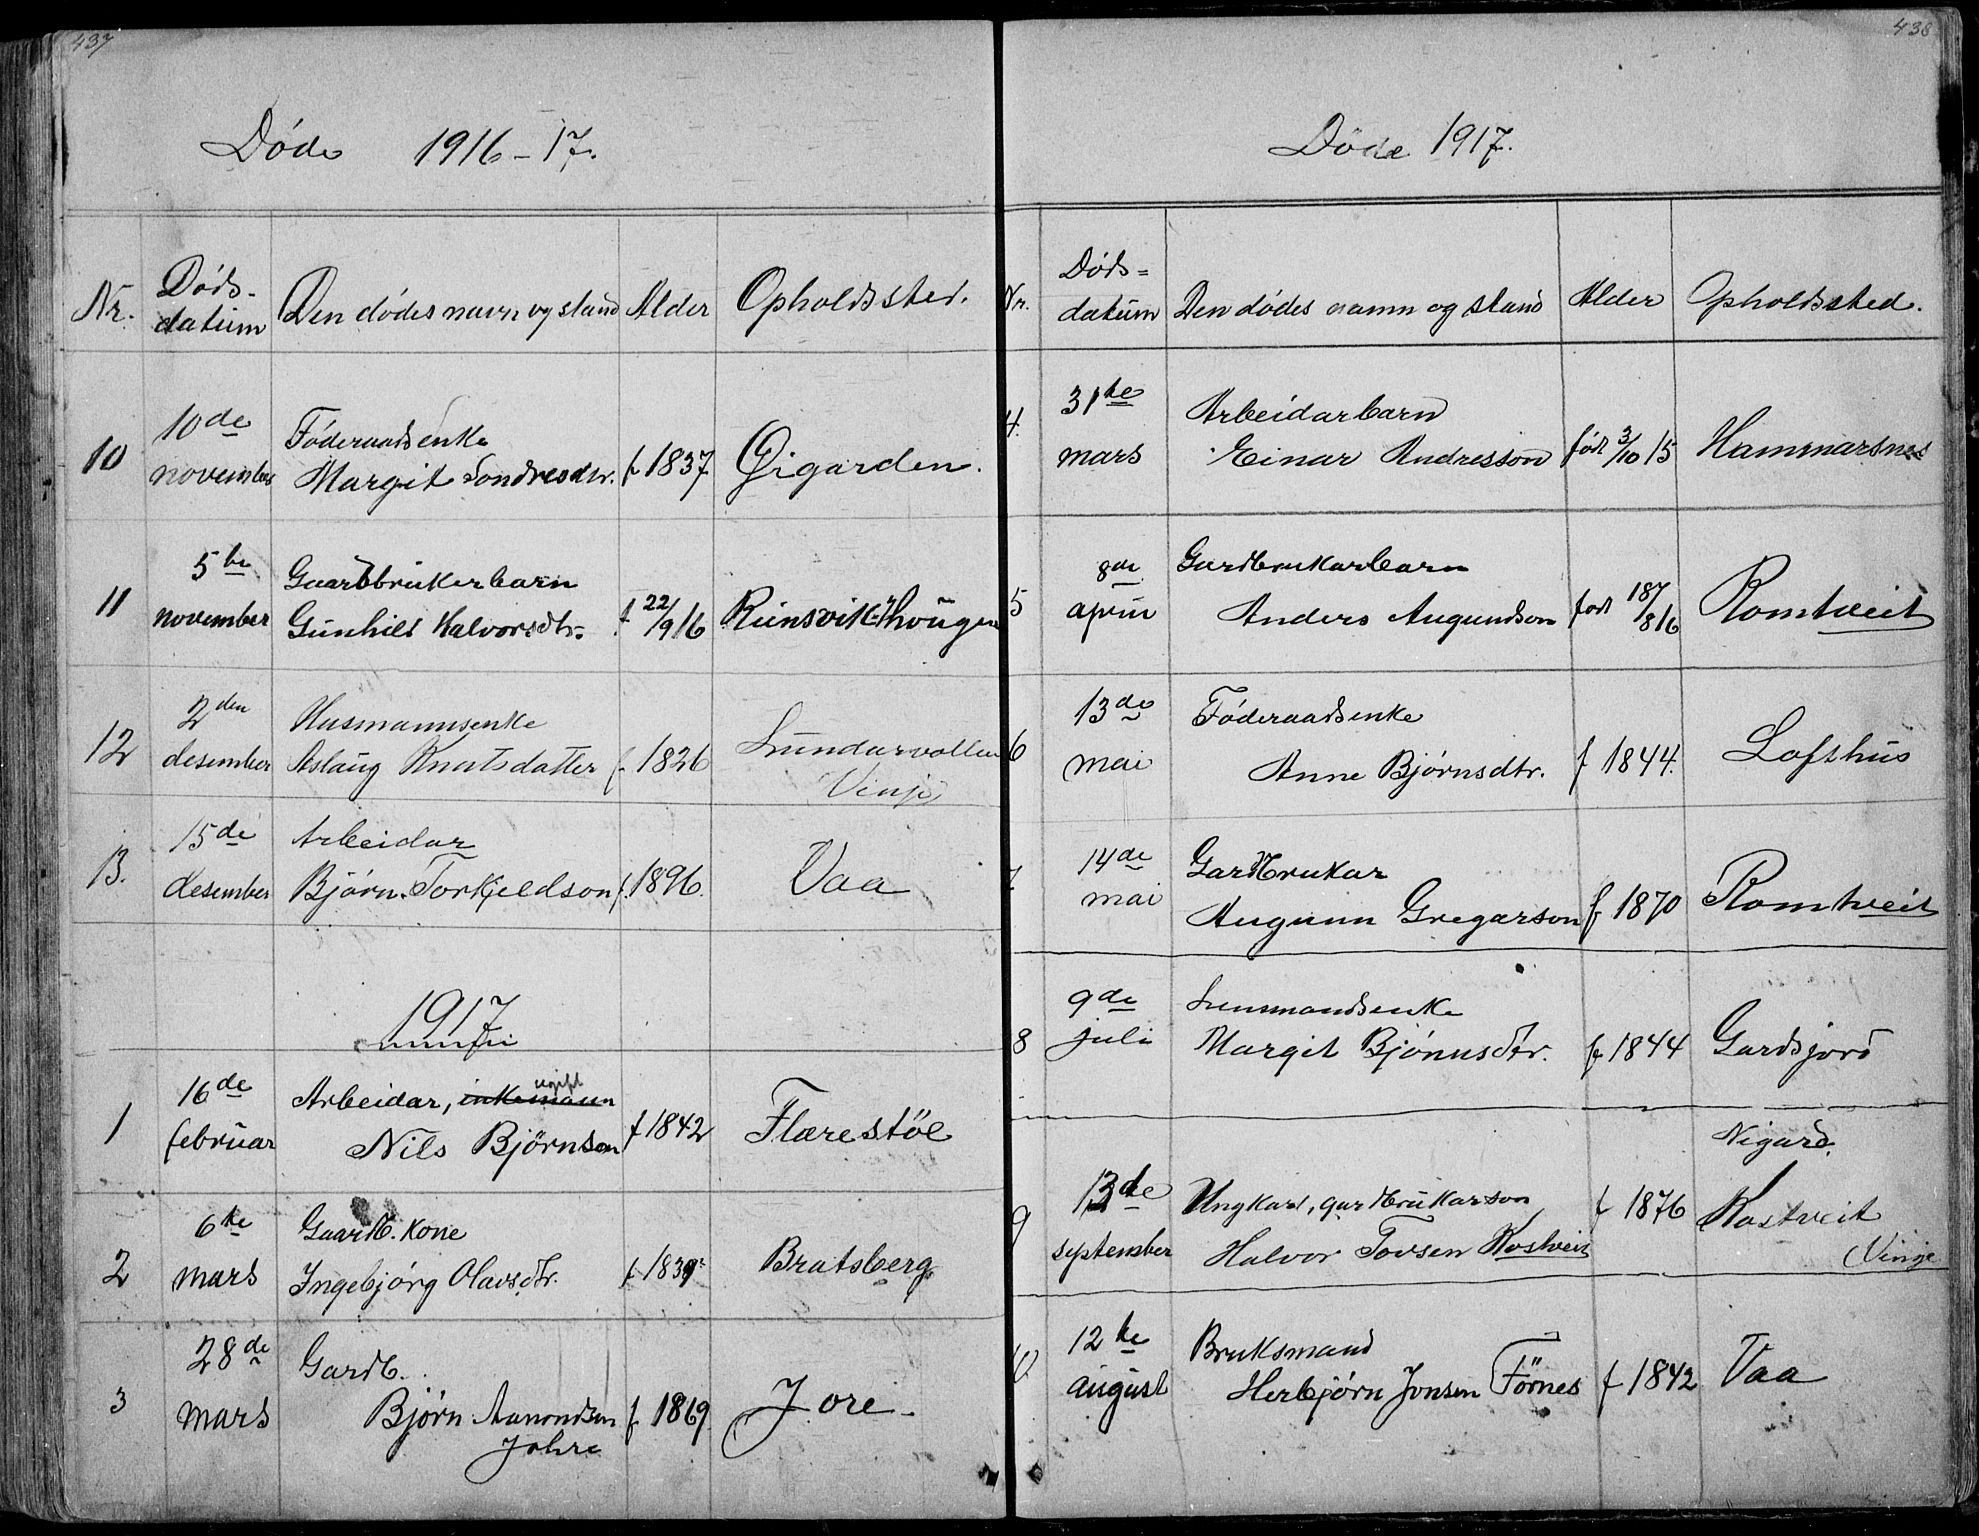 437
Døde 1916-17.
Nr. Døds- datum Den dødes navn og stand Alder Opholdssted.
10 10de november Föderaadsenke
Margit Tondresdtr. f 1837 Øigarden.
11 5te november Gaardbrukerbarn
Gunhild Halvorsdtr. f 22/9 16 Rünsvik
12 2den desember Husmannsenke
Aslaug Knutsdatter f. 1826 Lundarvollen
Vinje
13. 15de desember Arbeidar
Bjørn Torkjeldson f. 1896. Vaa
1917
1 16de februar Arbeidar, enkemann ugift
Nils Björnson f 1842 Flærestöl
2 6te mars Gaardb. kone
Ingebjörg Olavsdtr. f. 1839 Bratsberg
3 28de mars Gardb.
Bjørn Aamondsen f. 1869 Jore
Johre
438
Døde 1917.
Nr. Døds= datum Den dødes namn og stand Alder Opholdssted.
4. 31te mars Arbeidarbarn
Einar Andresson født 3/10 15 Hammarsnes
5 8de april Gardbrukarbarn
Anders Augundson født 8/16 Romtveit
6 13de mai Föderaadsenke
Anne Bjørnsdtr. f 1844. Lofthus
7 14de mai Gardbrukar
Augunn Gregarson f 1870 Romtveit
8 9de juli Lensmandsenke
Margit Bjönnsdtr. f. 1844 Gardsjord
Nigard.
9 13de september Ungkarl, gardbrukarson f 1876 Kostveit
Halvor Tovsen Kostveit Vinje
10 12te august Bruksmand
Herbjørn Jonsen Förnes f 1842 Vaa